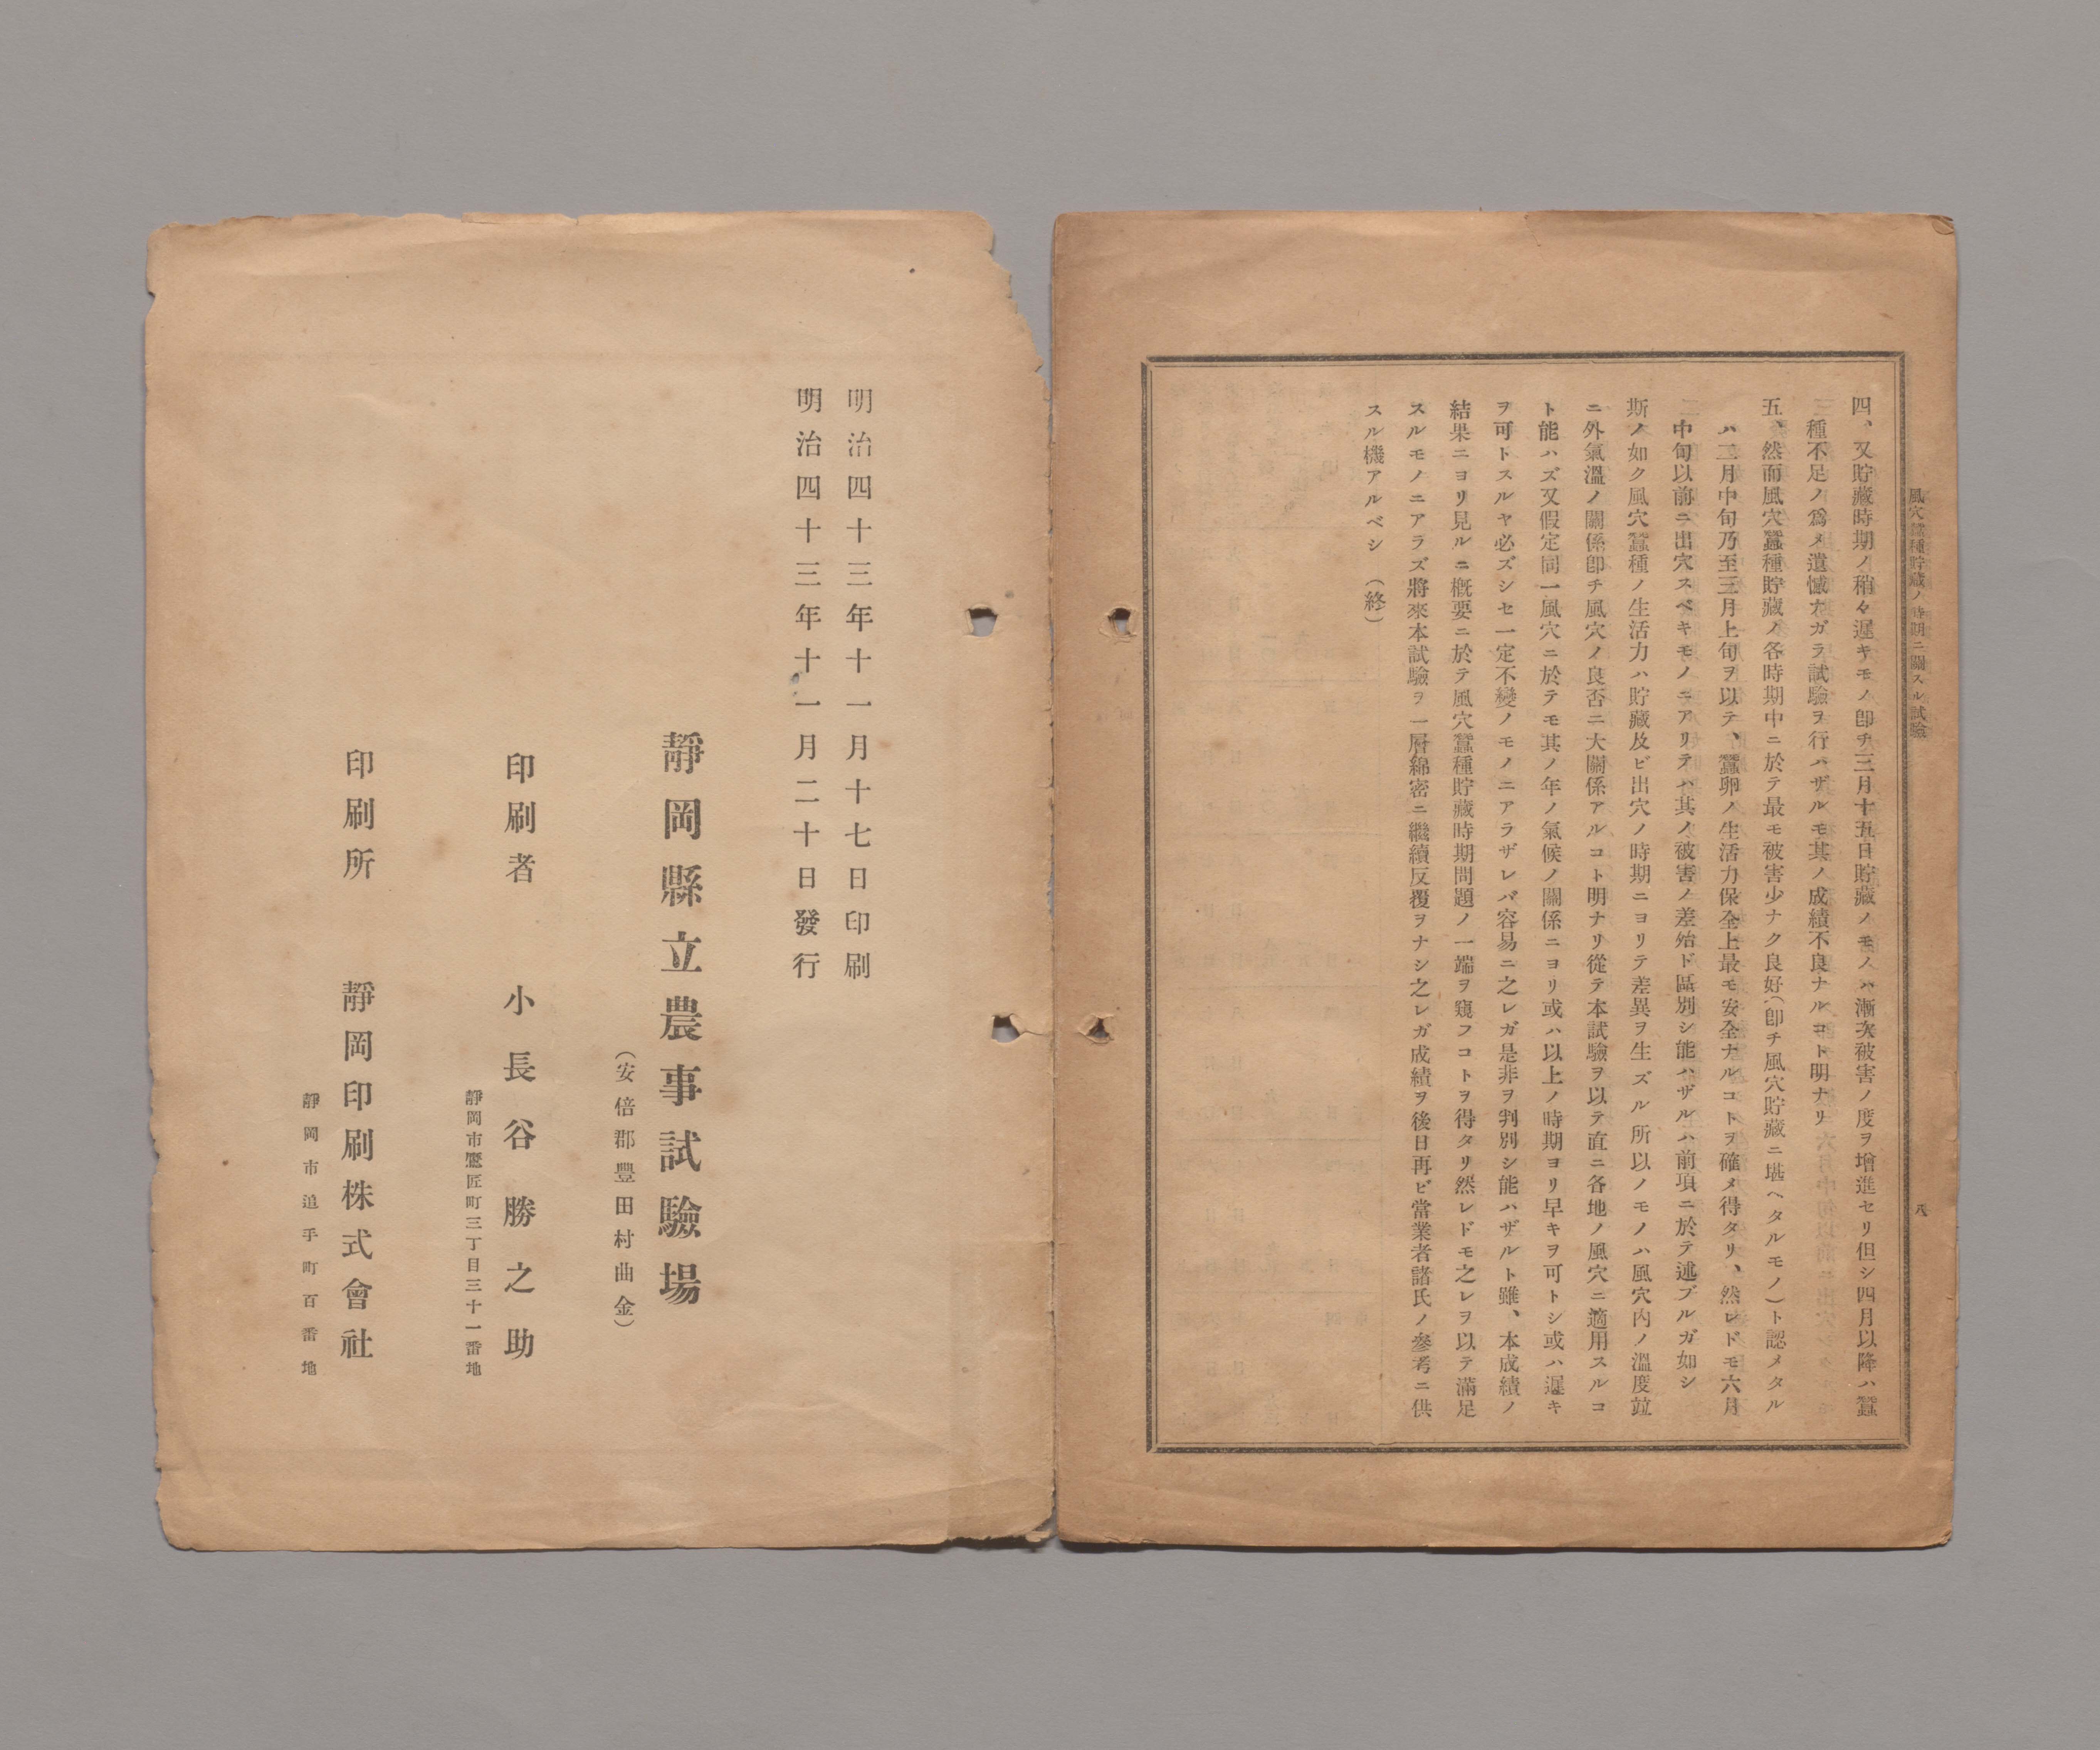 風穴蠶種貯藏ノ時期ニ關スル試驗
八
四、又貯藏時期ノ稍々遲キモノ卽チ三月十五日貯藏ノモノハ漸次被害ノ度ヲ增進セリ但シ四月以降ハ蠶
種不足ノ爲メ遺憾ナガラ試驗ヲ行ハザルモ其ノ成績不良ナルコト明ナリ
五、然而風穴蠶種貯藏ノ各時期中ニ於テ最モ被害少ナク良好(卽チ風穴貯藏ニ堪ヘタルモノ)ト認メタル
ハ二月中旬乃至三月上旬ヲ以テ、蠶卵ノ生活力保全上最モ安全ナルコトヲ確メ得タリ、然レドモ六月
中旬以前ニ出穴スベキモノニアリテハ其ノ被害ノ差殆ド區別シ能ハザルハ前項ニ於テ述ブルガ如シ
斯ノ如ク風穴蠶種ノ生活力ハ貯藏及ビ出穴ノ時期ニヨリテ差異ヲ生ズル所以ノモノハ風穴內ノ溫度竝
ニ外氣溫ノ關係卽チ風穴ノ良否ニ大關係アルコト明ナリ從テ本試驗ヲ以テ直ニ各地ノ風穴ニ適用スルコ
ト能ハズ又假定同一風穴ニ於テモ其ノ年ノ氣候ノ關係ニヨリ或ハ以上ノ時期ヨリ早キヲ可トシ或ハ遲キ
ヲ可トスルヤ必ズシセ一定不變ノモノニアラザレバ容易ニ之レガ是非ヲ判別シ能ハザルト雖、本成績ノ
結果ニヨリ見ルニ槪要ニ於テ風穴蠶種貯藏時期問題ノ一端ヲ窺フコトヲ得タリ然レドモ之レヲ以テ滿足
スルモノニアラズ將來本試驗ヲ一層綿密ニ繼續反覆ヲナシ之レガ成績ヲ後日再ビ當業者諸氏ノ參考ニ供
スル機アルベシ (終)
明治四十三年十一月十七日印刷
明治四十三年十一月二十日發行
靜岡縣立農事試驗場
(安倍郡豐田村曲金)
印刷者 小長谷勝之助
靜岡市鷹匠町三丁目三十一番地
印刷所 靜岡印刷株式會社
靜岡市追手町百番地